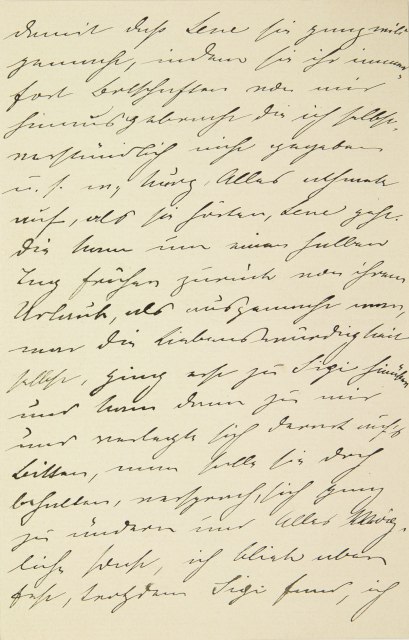 damit daß Lene sie ganz wild
gemacht, indem sie ihr immer-
fort Botschaften von mir
hinausgebracht die ich selbst-
verständlich nicht gegeben
u. s. w., kurz Alles athmete
auf, als sie hörten, Lene geht.
Die kam um einen halben
Tag früher zurück von ihrem
Urlaub, als ausgemacht war,
war die Liebenswürdigkeit
selbst, ging erst zu Sigi hinüber
und kam dann zu mir
und verlegte sich derart auf's
Bitten, man solle sie doch
behalten, versprach, sich ganz
zu ändern und Alles Mög-
liche sonst, ich blieb aber
fest, trotzdem Sigi fand, ich